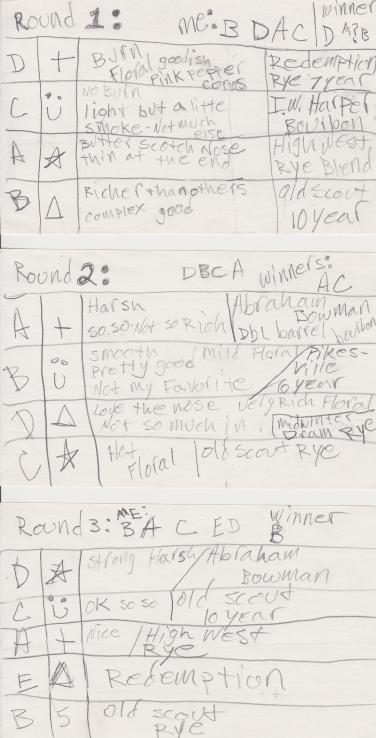 Round 1: me: B D A C winner
D A?B
D + Burn goodish Redemption
Floral pink pepper Rye 7 year
corns
C No Burn I.W. Harper
light but a litte Bourbon
smoke - Not much
else
A Butter Scotch Nose High West
thin at the end Rye Blend
B Richer than others Old Scout
complex good 10 year
Round 2: D B C A winners:
A C
A + Harsh Abraham
so.so. Not so Rich Bowman
Dbl barrel bourbon
B smooth mild Floral Pikes-
Pretty good ville
Not my Favorite 6 year
D Love the nose very Rich Floral
Not so much in midwinter
Dram Rye
C Hot old scout Rye
Floral
Round 3: ME: B A C E D winner
B
D Strong Harsh Abraham
Bowman
C OK so so old scout
10 year
A + Nice High West
Rye
E Redemption
B 5 Old scout
Rye